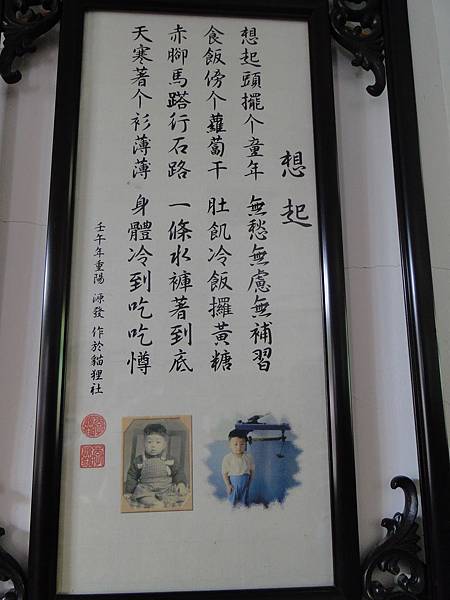 想起
想起頭擺个童年 無愁無慮無補習
食飯傍个蘿蔔干 肚飢冷飯攞黃糖
赤腳馬蹃行石路 一條水褲著到底
天寒著个衫薄薄 身體冷到吃吃憉
壬午年重陽 源發 作於貓狸社